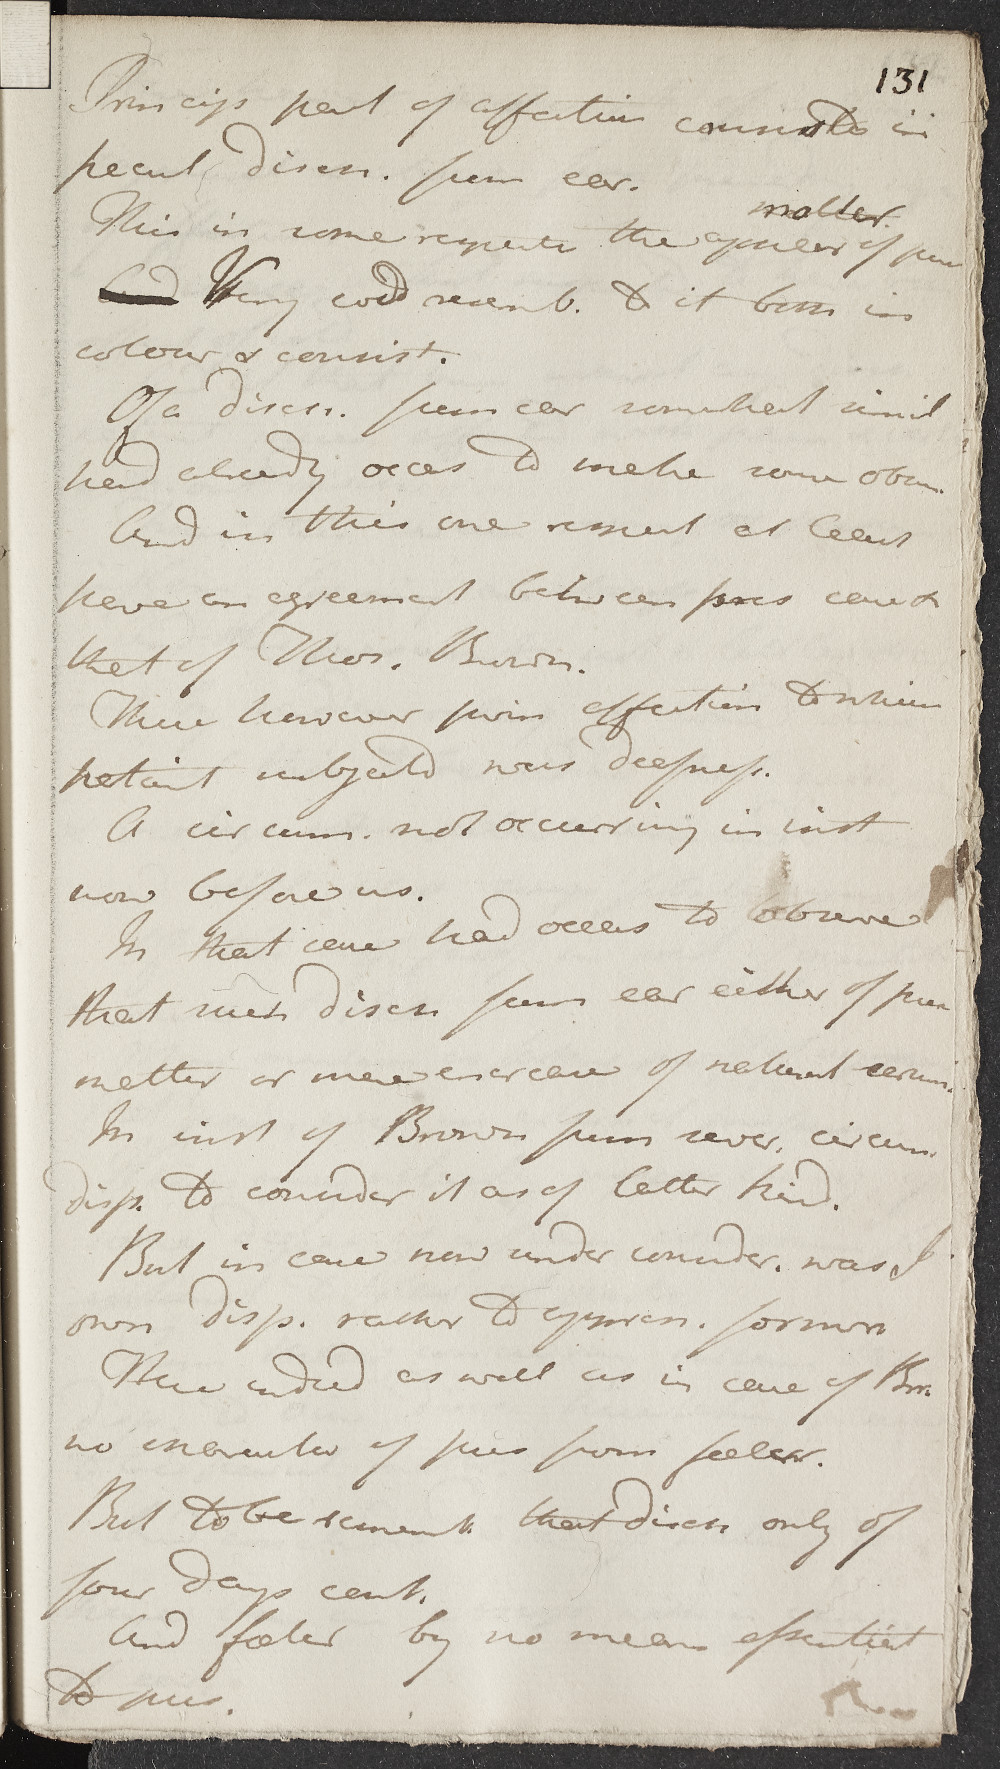 131
Princip part of affection consists in
pecul. disch. from ear.
matter.
This in some respects the appear of pur
And Very cod resemb. to it both in
colour & consist.
Of a disch. from ear somewhat simil
had already occas to make some obser.
And in this one respect at least
have an agreement between pres case &
that of Thos. Brown.
There however prin affection to which
patient subjectd was deafness.
A circum. not occurring in inst
now before us.
In that case had occas to observe
that such disch from ear either of pur
matter or mere increase of natural cerum.
In inst of Brown from sever. circum.
disp. to consider it as of latter kind.
But in case now under consider. was I
own disp. rather to appreh. former
Here indeed as well as in case of Br.
no of pus from foeter.
But to be rememb. that disch only of
four days cont.
And foeter by no means essential
to pus.